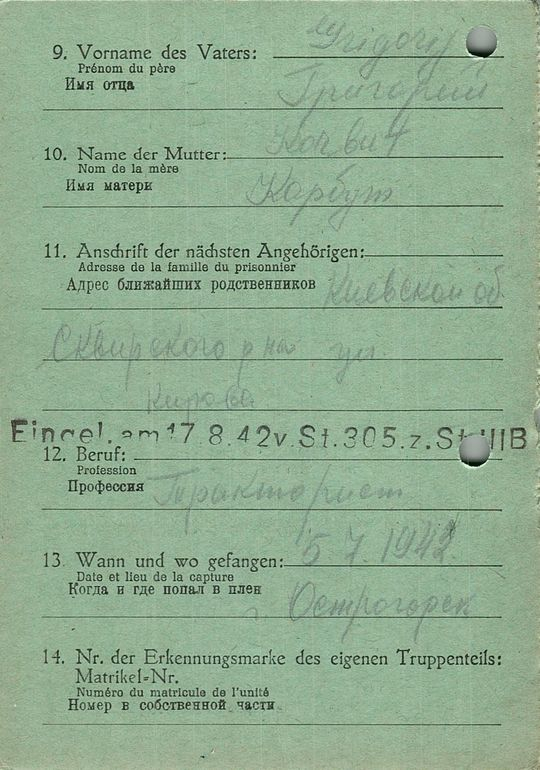 Grigorij
9. Vorname des Vaters:
Prénom du père
Имя отца
Григорий
10. Name der Mutter:
Nom de la mère
Имя матери
Карбут
11. Anschrift der nächsten Angehörigen:
Adresse de la famille du prisonnier
Адрес ближайших родственников Киевской об
Сквирского р на ул
Кирова
Eingel. am 17.8.42 v. St. 305. z. St. IIIB
12. Beruf:
Profession
Профессия Тракторист
13. Wann und wo gefangen: 5.7.1942
Date et lieu de la capture
Когда и где попал в плен
Острогорск
14. Nr. der Erkennungsmarke des eigenen Truppenteils:
Matrikel-Nr.
Numéro du matricule de l'unité
Номер в собственной части